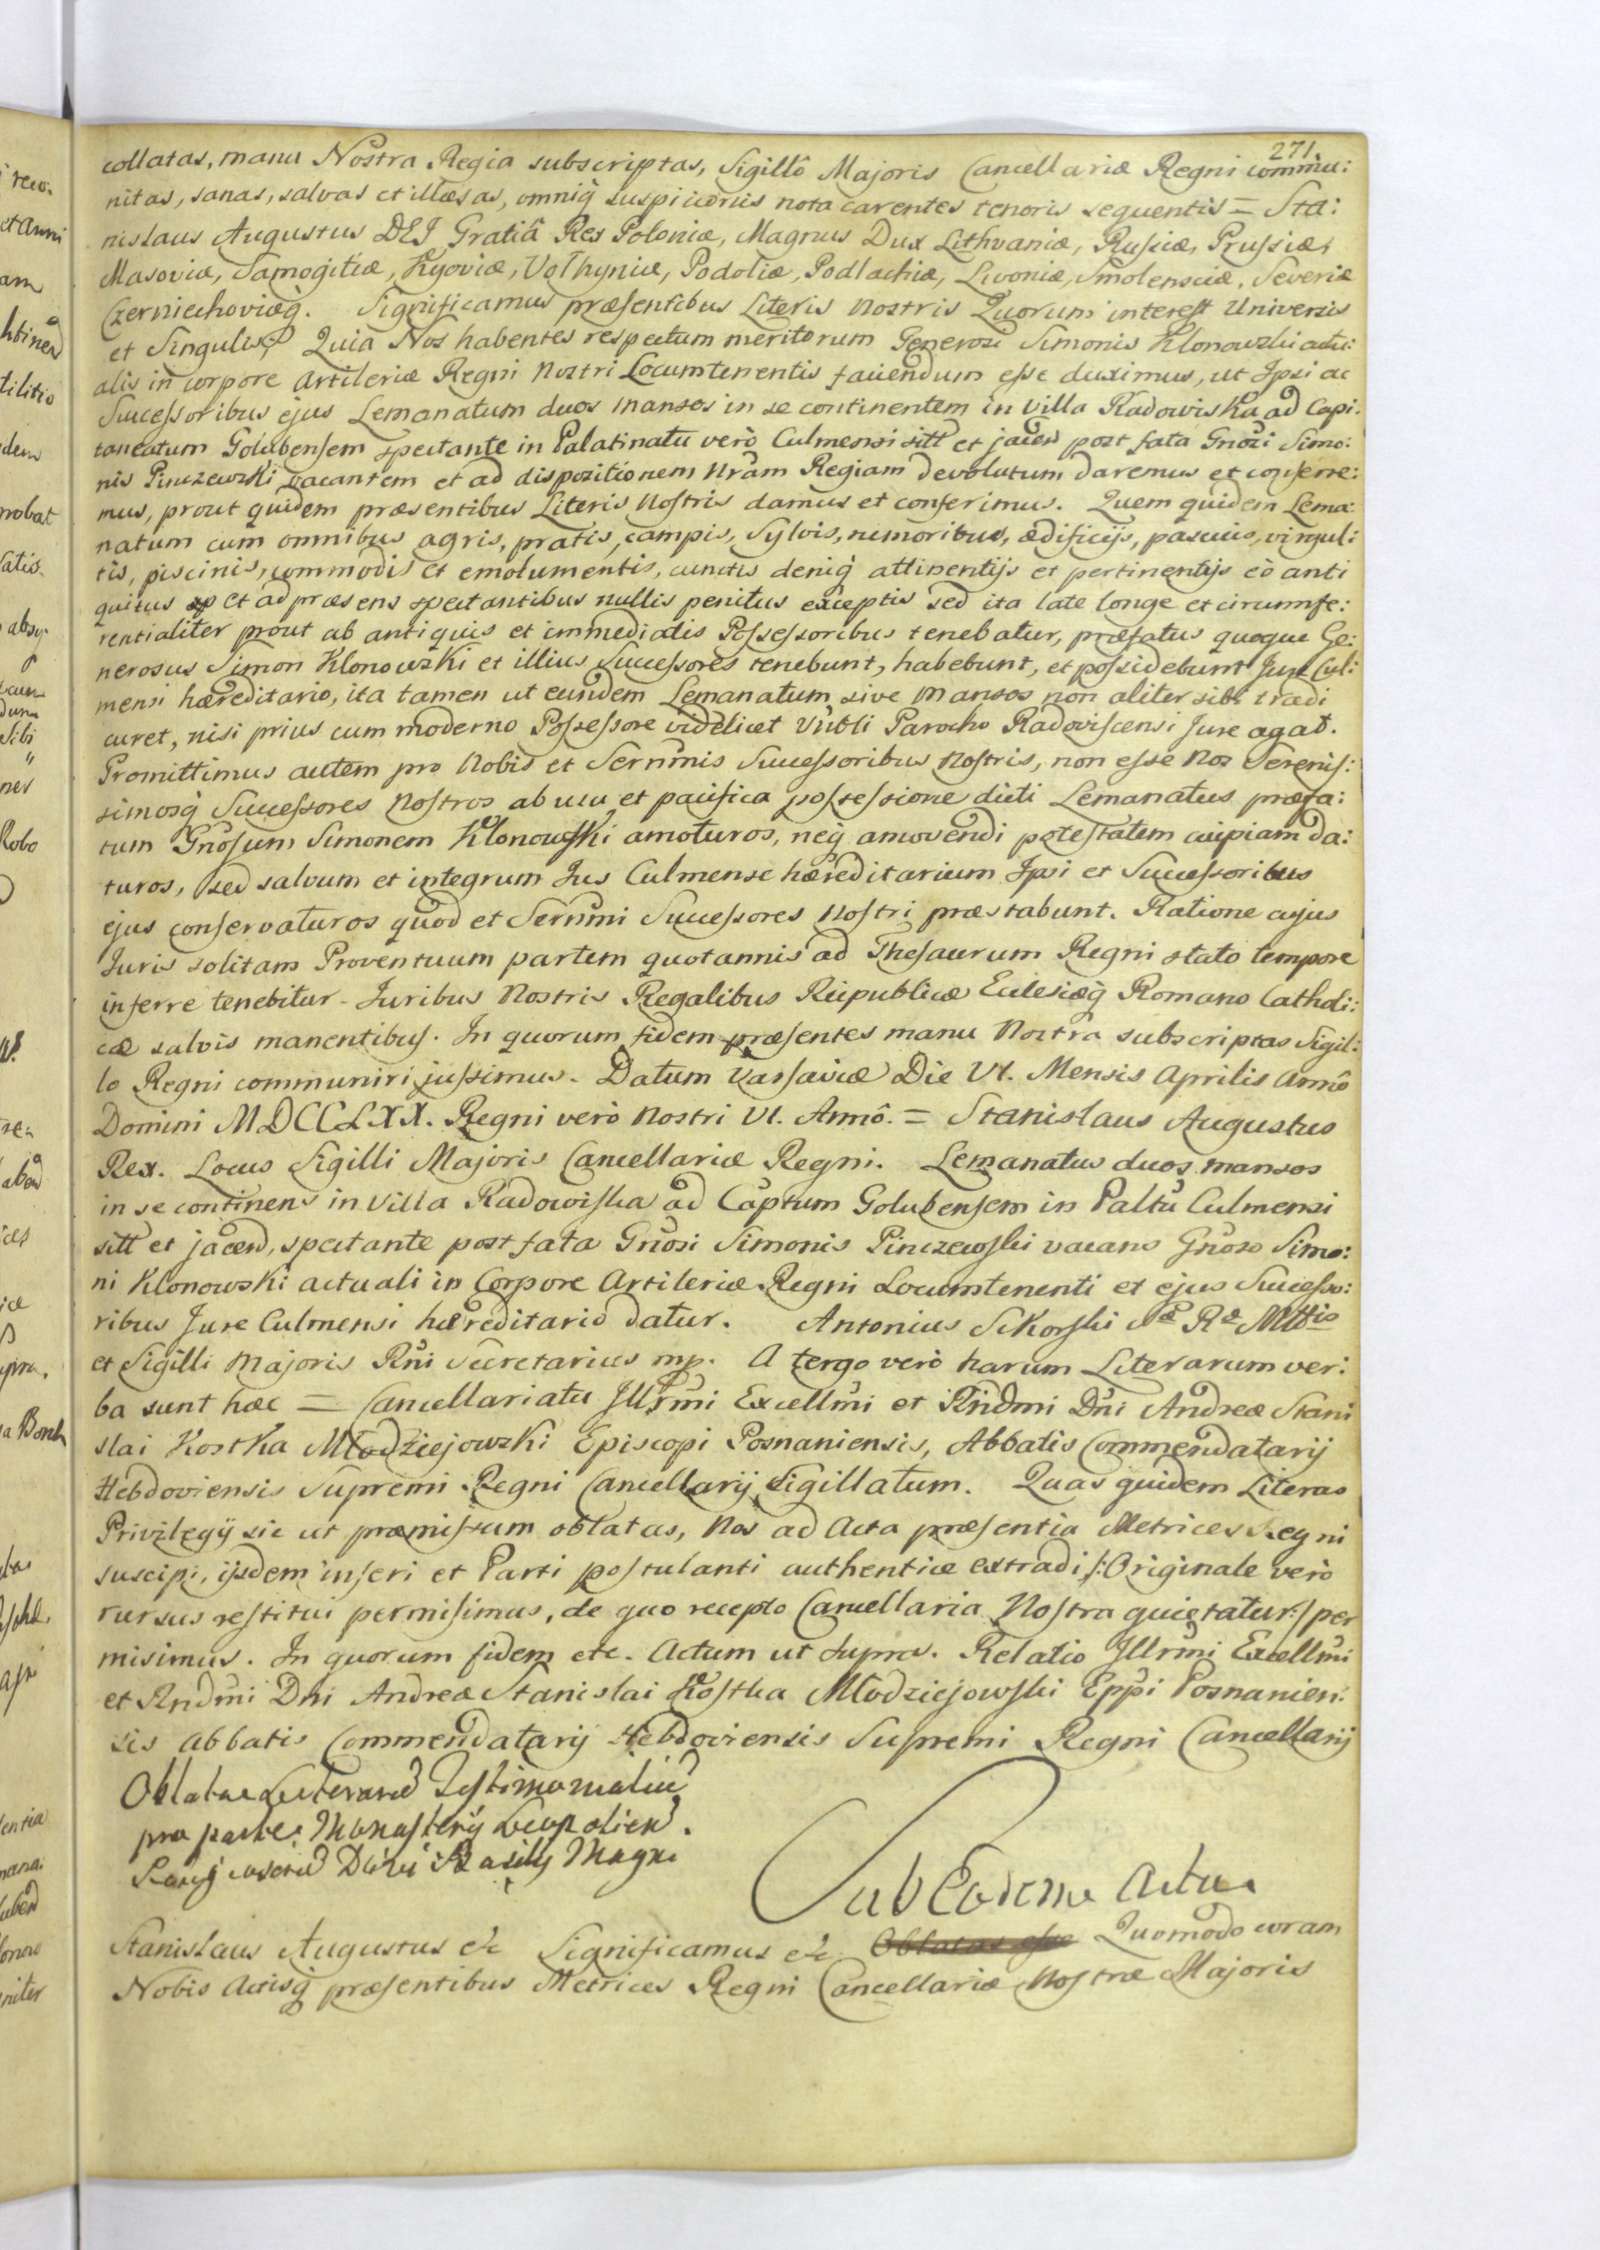 271.
collatas, manu Nostra Regia subscriptas, Sigillô Majoris Cancellariæ Regni commu:
nitas, sanas, salvas et illæsas, omniq̃ suspicionis nota carentes tenoris sequentis = Sta:
nislaus Augustus DEI Gratiâ Rex Poloniæ, Magnus Dux Lithvaniæ, Russiæ, Prussiæ,
Masoviæ, Samogitiæ, Kyoviæ, Volhyniæ, Podoliæ, Podlachiæ, Livoniæ, Smolensciæ, Severiæ
Czerniechoviæq̃. Significamus præsentibus Literis Nostris Quorum interest Universis
et Singulis Quia Nos habentes respectum meritorum Generosi Simonis Klonowski actu:
alis in corpore Artileriæ Regni Nostri Locumtenentis favendum esse duximus, ut Ipsi ac
Successoribus ejus Lemanatum duos mansos in se continentem in Villa Radowiska ad Capi:
taneatum Golubensem spectante in Palatinatu verò Culmensi sitt et jacen post fata Gnosi Simo:
nis Pinczewski vacantem et ad dispositionem Nram Regiam devolutum daremus et conferre:
mus, prout quidem præsentibus Literis Nostris damus et conferimus. Quem quidem Lema:
natum cum omnibus agris, pratis, campis, Sylvis, nemoribus, ædificijs, pascuis, virgul:
tis, piscinis, commodis et emolumentis, cunctis deniq̃ attinentijs et pertinentijs eò anti
quitus et ad præsens spectantibus nullis penitus exceptis sed ita late longe et circumfe:
rentialiter prout ab antiquis et immediatis Possessoribus tenebatur, præfatus quoque Ge:
nerosus Simon Klonowski et illius Successores tenebunt, habebunt, et possidebunt Jure Cul:
mensi hæreditario, ita tamen ut eundem Lemanatum sive Mansos non aliter sibi tradi
curet, nisi prius cum moderno Possessore videlicet Vnbli Parocho Radoviscensi Jure agat.
Promittimus autem pro Nobis et Sernmis Successoribus Nostris, non esse Nos Serenis:
simosq̃ Successores Nostros ab usu et pacifica possessione dicti Lemanatus præfa:
tum Gnosum Simonem Klonowski amoturos, neq̃ amovendi potestatem cuipiam da:
turos, sed salvum et integrum Jus Culmense hæreditarium Ipsi et Successoribus
ejus conservaturos quod et Sernmi Successores Nostri præstabunt. Ratione cujus
Juris solitam Proventuum partem quotannis ad Thesaurum Regni stato tempore
inferre tenebitur. Juribus Nostris Regalibus Reipublicæ Eclesiæq̃ Romano Catholi:
cæ salvis manentibus. In quorum fidem præsentes manu Nostra subscriptas Sigil:
lo Regni communiri jussimus. Datum Varsaviæ Die VI. Mensis Aprilis Annô
Domini MDCCLXX. Regni verò Nostri VI. Annô. = Stanislaus Augustus
Rex. Locus Sigilli Majoris Cancellariæ Regni. Lemanatus duos mansos
in se continens in Villa Radowiska ad Captum Golubensem in Paltu Culmensi
sitt et jacen, spectante post fata Gnosi Simonis Pinczewski vacans Gnoso Simo:
ni Klonowski actuali in Corpore Artileriæ Regni Locumtenenti et ejus Successo:
ribus Jure Culmensi hæreditario datur. Antonius Sikorski Sæ Ræ Mttis
et Sigilli Majoris Rni Secretarius mp. A tergo verò harum Literarum ver:
ba sunt hæc = Cancellariatu Illrmi Excellmi et Rndmi Dni Andreæ Stani
slai Kostka Młodziejowski Episcopi Posnaniensis, Abbatis Commendatarij
Hebdoviensis Supremi Regni Cancellarij Sigillatum. Quas quidem Literas
Privilegij sic ut præmissum oblatas, Nos ad Acta præsentia Metrices Regni
suscipi, ijsdem inseri et Parti postulanti authenticæ extradi /: Originale verò
rursus restitui permisimus, de quo recepto Cancellaria Nostra quietatur :/ per
misimus. In quorum fidem etc. Actum ut supra. Relatio Illrmi Excellmi
et Rndmi Dni Andreæ Stanislai Kostka Młodziejowski Eppi Posnanien:
sis Abbatis Commendatarij Hebdoviensis Supremi Regni Cancellarij
Oblatae Literarū Testimonialiū
pro parte Monasterij Leopolien.
Divi Basilij Magni
Sub Eodem Actu.
Stanislaus Augustus etc Significamus etc Quomodo coram
Nobis Actisq̃ præsentibus Metrices Regni Cancellariæ Nostræ Majoris